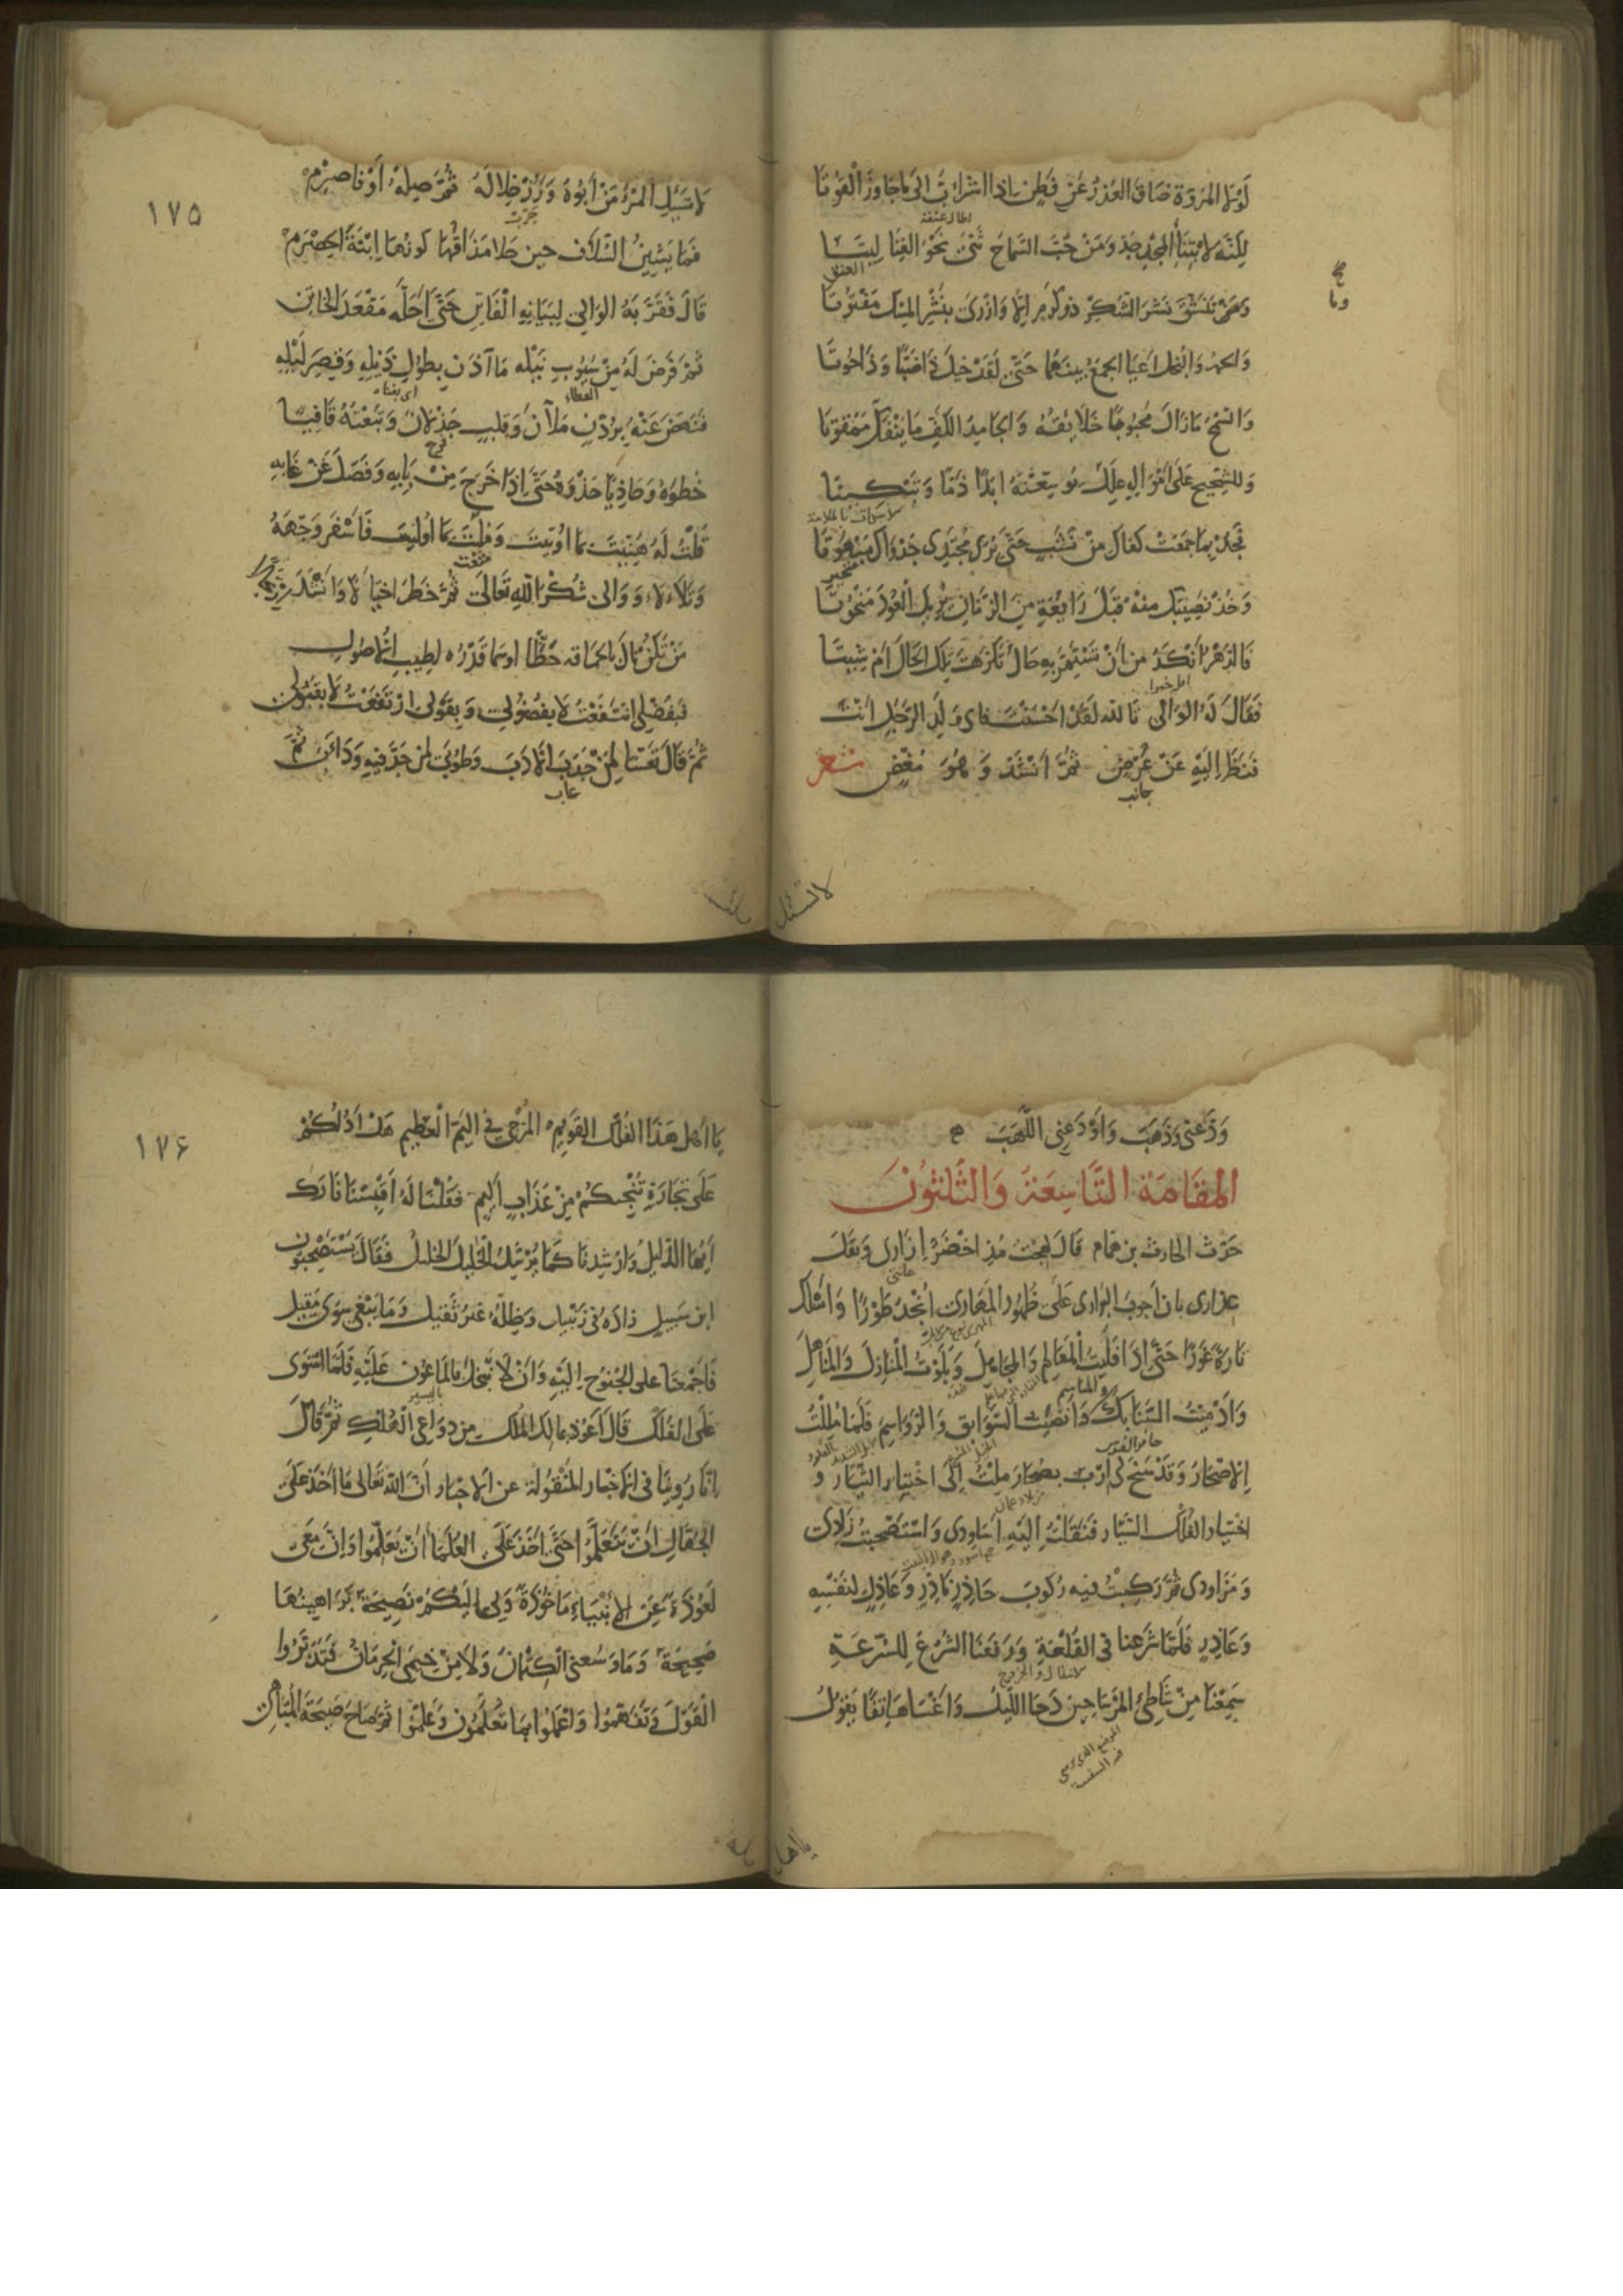 لَوْلَا المُرُوَّةُ ضَاقَ العُذْرُ عَنْ فَطِنٍ اذا اشْرَابَّ الى مَا جَاوَزَ الْقُوتَا
لكِنَّه لِابْتِنَاءِ المجْدِ جَدَّ وَمَنْ حُبّ السَّماحِ ثَنَى نَحْوَ الغِنَا لِيتَا
اطال عنقه
العنق
وَمَا تَنَشَّقَ نَشْرَ الشُّكْرِ ذو كَرَمٍ الّا وَازْرَى بِنَشْرِ المِسْك مَفْتُوتَا
صح
وما
وَالحمدُ وَالبُخلُ اعْيَا الجمعُ بينهُما حَتَّى لَقَدْ خِيلَ ذَا ضَبًّا وَذَا حُوتَا
وَالسَّمْحُ مَازَالَ مَحْبُوبًا خَلَائِقُهُ وَالجامدُ الكَفِّ مَا يَنْفَكُّ مَمْقوتَا
وَللشَّحِيحِ عَلَى اَمْوَالِهِ عِلَلٌ يُوسِعْنَهُ ابَدًا ذَمًّا وَتَبْكِيتَا
فَجُدْ بِمَا جَمَعَتْ كفّاكَ مِنْ نَشَبٍ حَتَّى يُرَى مُجْتَدِى جَدْوَاكَ مَبْهُوتَا
متحير
وَخُذْ نَصِيبَكَ مِنْهُ قَبْلَ رَايِعَةٍ مِنَ الزَّمَانِ تُرِيكَ الْعُودَ مَنْحُوتَا
فَالدَّهْرُ اَنْكَدُ مِن اَنْ تَسْتَمِرَّ بِهِ حَالٌ تَكَرَّهْتَ تِلْكَ الحَالَ اَمْ شِيتَا
فَقَالَ لَهُ الوَالى تَاللهِ لَقَدْ اَحْسَنْتَ فاىُّ وَلَدِ الرَّجُلِ اَنْتَ
فَنَظَرَ اِلَيْهِ عَنْ عُرْضٍ ثُمَّ اَنْشَدَ وَهُوَ مُغْضٍ شعر
جانب
لا تسئل
١٧٥
لَا تَسْئَلِ المَرْءَ مَنْ اَبُوهُ وَرُزْ خِلَالَهُ ثُمَّ صِلْهُ اَوْ فَاصْرِمْ
جرّب
فَمَا يَشِينُ السُّلَافَ حين حَلَا مَذَاقُهَا كَونُهَا ابْنَةُ الحِصْرِمْ
قَالَ فَقَرَّبَهُ الوَالِى لِبَيَانِهِ الْفَاتِنِ حَتَّى اَحَلَّه مَقْعَدَ الخاتن
ثُمَّ فَرَضَ لَهُ مِنْ سُيُوبِ نَيْلِه مَا آذَنَ بِطُولِ ذَيْلِهِ وَقِصَرِ لَيْلِهِ
العطاء
فَنَهَضَ عَنْهُ بِرُدْنٍ مَلْآنَ وَقَلبٍ جَذْلَانَ وَتَبِعْتُهُ قَافِيًا
فرح
خُطْوَهُ وَحَاذِيًا حَذْوَهُ حَتَّى اِذَا خَرَجَ مِنْ بَابِهِ وَفَصَلَ عَنْ غَابِهِ
قُلْتُ لَهُ هُنِّيتَ بمَا اُوتِيتَ وَمُلِّيتَ بمَا اُولِيتَ فَاَسْفَرَ وَجْهُهُ
متعت
وَتَلَأْلَأَ وَوَالى شُكْرَ اللهِ تَعَالَى ثُمَّ خَطَرَ اخْتِيَالًا وَاَنْشَدَ ارْتِجَالًا
مَنْ يَكُنْ نَالَ بِالحمَاقَةِ حَظًّا اوسما قَدْرُهُ لِطِيبِ الْاُصُولِ
فَبِفَضْلى انْتَفَعْتُ لَا بِفُضُولى وَبِقَوْلى ارْتَفَعْتُ لَا بِقُيُولى
ثُمَّ قَالَ تَعْسًا لِمَنْ جَدَبَ الْاَدَبَ وَطُوبَى لمَنْ جَدَّ فِيهِ وَدَأَبَ ثُمَّ
عاب
وَدَّعَنى وَذَهَبَ وَاَوْدَعَنِى اللَّهَبَ
المَقَامَة التَّاسِعَة وَالثَّلَاثُونَ
حَدَّثَ الحارث بن همام قَالَ لَهِجْتُ مُذِ اخْضَرَّ اِزَارى وَبَقَلَ
عِذارى بان اَجوبَ البَرَارى عَلَى ظُهُورِ المَهَارى اُنْجِدُ طَوْرًا وَاَسْلُكُ
تَارَةً غَوْرًا حَتَّى اِذَا فَلَيْتُ الْمَعَالِمَ وَالمجَاهِلَ وَبَلَوْتُ الْمَنَازِلَ وَالمَنَاهِلَ
وَاَدْمَيْتُ السَّنَابِكَ والمناسم وَاَنْضَيْتُ السَّوَابِقَ وَالرَّوَاسِمَ فَلَمّا مَلِلْتُ
حافر الفرس
الِاصْحَارَ وَقَدْ سَنَحَ لِى اَرَبٌ بِصُحَارَ مِلْتُ اِلَى اخْتِيارِ التَّيَّارِ وَ
اخْتِيارِ الفُلْكِ السَّيَّارِ فَنَقَلْتُ اِلَيْهِ اَسَاوِدى وَاسْتَصْحَبْتُ زَادِى
وَمَزَاودى ثُمَّ رَكِبْتُ فيهِ رُكُوبَ حَاذِرٍ نَاذِرٍ وَعَاذِلٍ لنَفْسِهِ
وَعَاذِرٍ فَلَمَّا شَرَعنا فى القَلْعَةِ وَرَفَعْنَا الشُّرُعَ لِلسُّرْعَةِ
سَمِعْنَا مِنْ شَاطِئِ المَرْسَا حِينَ دَجَا اللَّيْلُ وَاَغْسَا هَاتِفًا يَقُولُ
الموضع الذى ترسى
فيه السفينة
يا اهل
١٧۶
يَا اَهْلَ هَذَا الفُلْكِ القَوِيمِ المُزْجَى فِى اليَمِّ الْعَظِيمِ هَلْ اَدُلُّكُمْ
عَلَى تِجَارَةٍ تُنْجِيكُمْ مِنْ عَذَابٍ اَلِيمٍ فَقُلْنَا لَهُ اَقْبِسْنَا نَارَكَ
اَيُّهَا الدَّلِيلُ وَاَرْشِدْنَا كَمَا يُرْشِدُ الْخَلِيلُ الخَلِيلَ فَقَالَ تَسْتَصْحِبُون
ابن سَبِيلٍ زادُهُ فى زَنْبِيلٍ وَظِلُّهُ غَيْرُ ثَقِيلٍ وَمَا يَبْغى سِوَى مَقِيلٍ
فَاَجْمَعْنَا على الجُنُوحِ اِلَيْهِ وَاَنْ لَا نَبْخَلَ بِالمَاعُونِ عَلَيْهِ فَلَمَّا اسْتَوَى
عَلَى الفُلْكِ قَالَ اَعُوذُ بمَالِكِ المُلْكِ مِن دَوَاعِى الْهُلْكِ ثُمَّ قَالَ
اِنَّا رُوِينَا فى الْاَخْبَارِ المَنْقُولَةِ عن الْاَحْبَارِ اَنَّ اللّهَ تَعَالى مَا اَخَذَ عَلَى
الجُهَّالِ اَنْ يَتَعَلَّمُوا حَتَّى اَخَذَ عَلَى العُلَمَا اَنْ يُعَلِّمُوا وَاِنَّ مَعِى
لَعُوذَةً عَنِ الْاَنْبِيَاءِ مَاخُوْذَةً وَلى اِلَيْكُمْ نَصِيحَةٌ بَرَاهِينُهَا
صَحِيحَةٌ وَمَا وَسِعَنِى الْكِتْمَانُ وَلَا مِنْ خِيمِى الْحِرمَانُ فَتَدَبَّرُوا
الْقَوْلَ وَتَفَهَّمُوا وَاعْمَلُوا بِمَا تُعَلَّمُونَ وَعَلِّمُوا ثُمَّ صَاحَ صَيْحَةَ المُبَاهِى